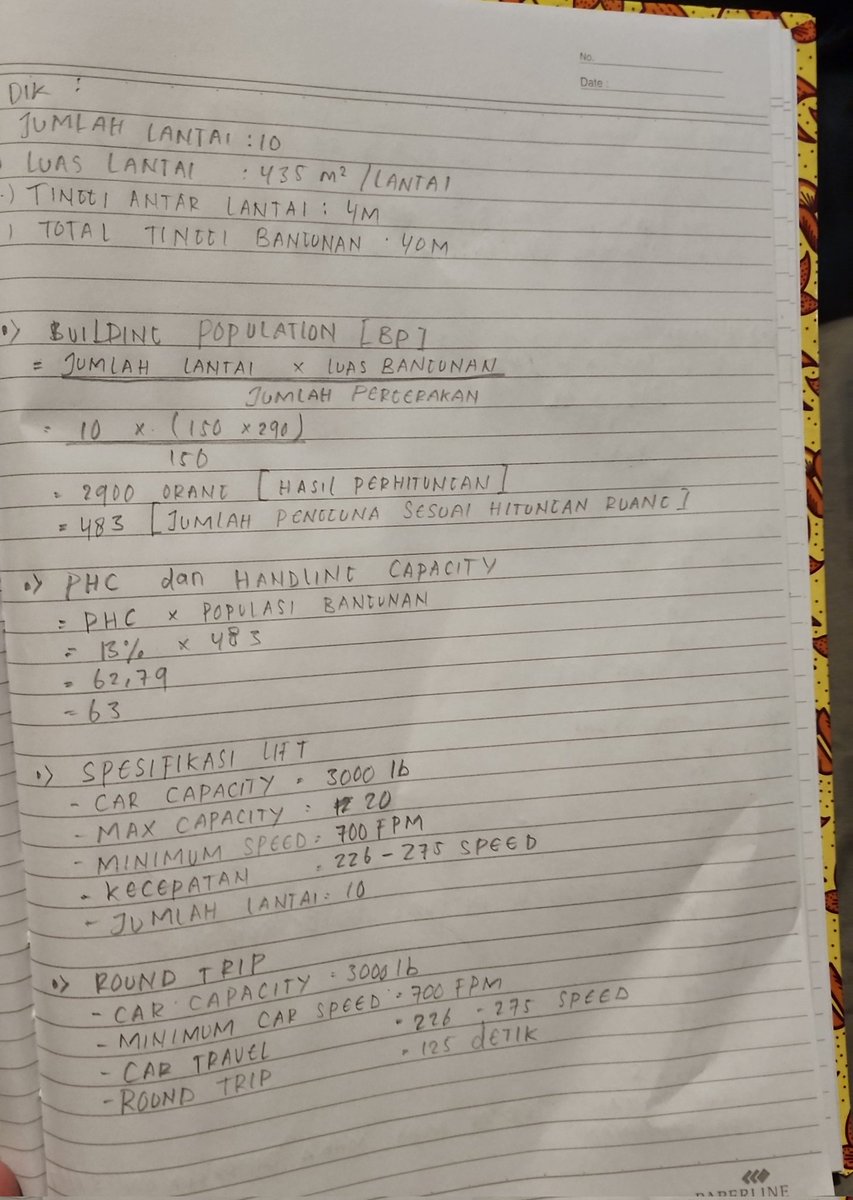 No.
Date :
DIK :
JUMLAH LANTAI : 10
LUAS LANTAI : 435 m² / LANTAI
.) TINGGI ANTAR LANTAI : 4M
) TOTAL TINGGI BANGUNAN . 40M
•> BUILDING POPULATION [BP]
= JUMLAH LANTAI × LUAS BANGUNAN
JUMLAH PERGERAKAN
= 10 × (150 × 290)
150
= 2900 ORANG [HASIL PERHITUNGAN]
= 483 [JUMLAH PENGGUNA SESUAI HITUNGAN RUANG]
•> PHC dan HANDLING CAPACITY
= PHC × POPULASI BANGUNAN
= 13% × 483
= 62,79
= 63
•> SPESIFIKASI LIFT
- CAR CAPACITY = 3000 lb
- MAX CAPACITY : 20
- MINIMUM SPEED = 700 FPM
- KECEPATAN = 226 - 275 SPEED
- JUMLAH LANTAI = 10
•> ROUND TRIP
- CAR CAPACITY = 3000 lb
- MINIMUM CAR SPEED = 700 FPM
- CAR TRAVEL = 226 - 275 SPEED
- ROUND TRIP = 125 dETIK
PAPERLINE